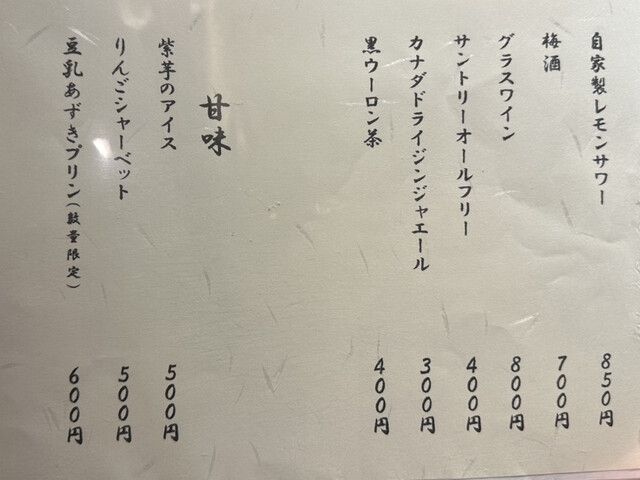 自家製レモンサワー 850円
梅酒 700円
グラスワイン 800円
サントリーオールフリー 400円
カナダドライジンジャエール 300円
黒ウーロン茶 400円
甘味
紫芋のアイス 500円
りんごシャーベット 500円
豆乳あずきプリン(数量限定) 600円